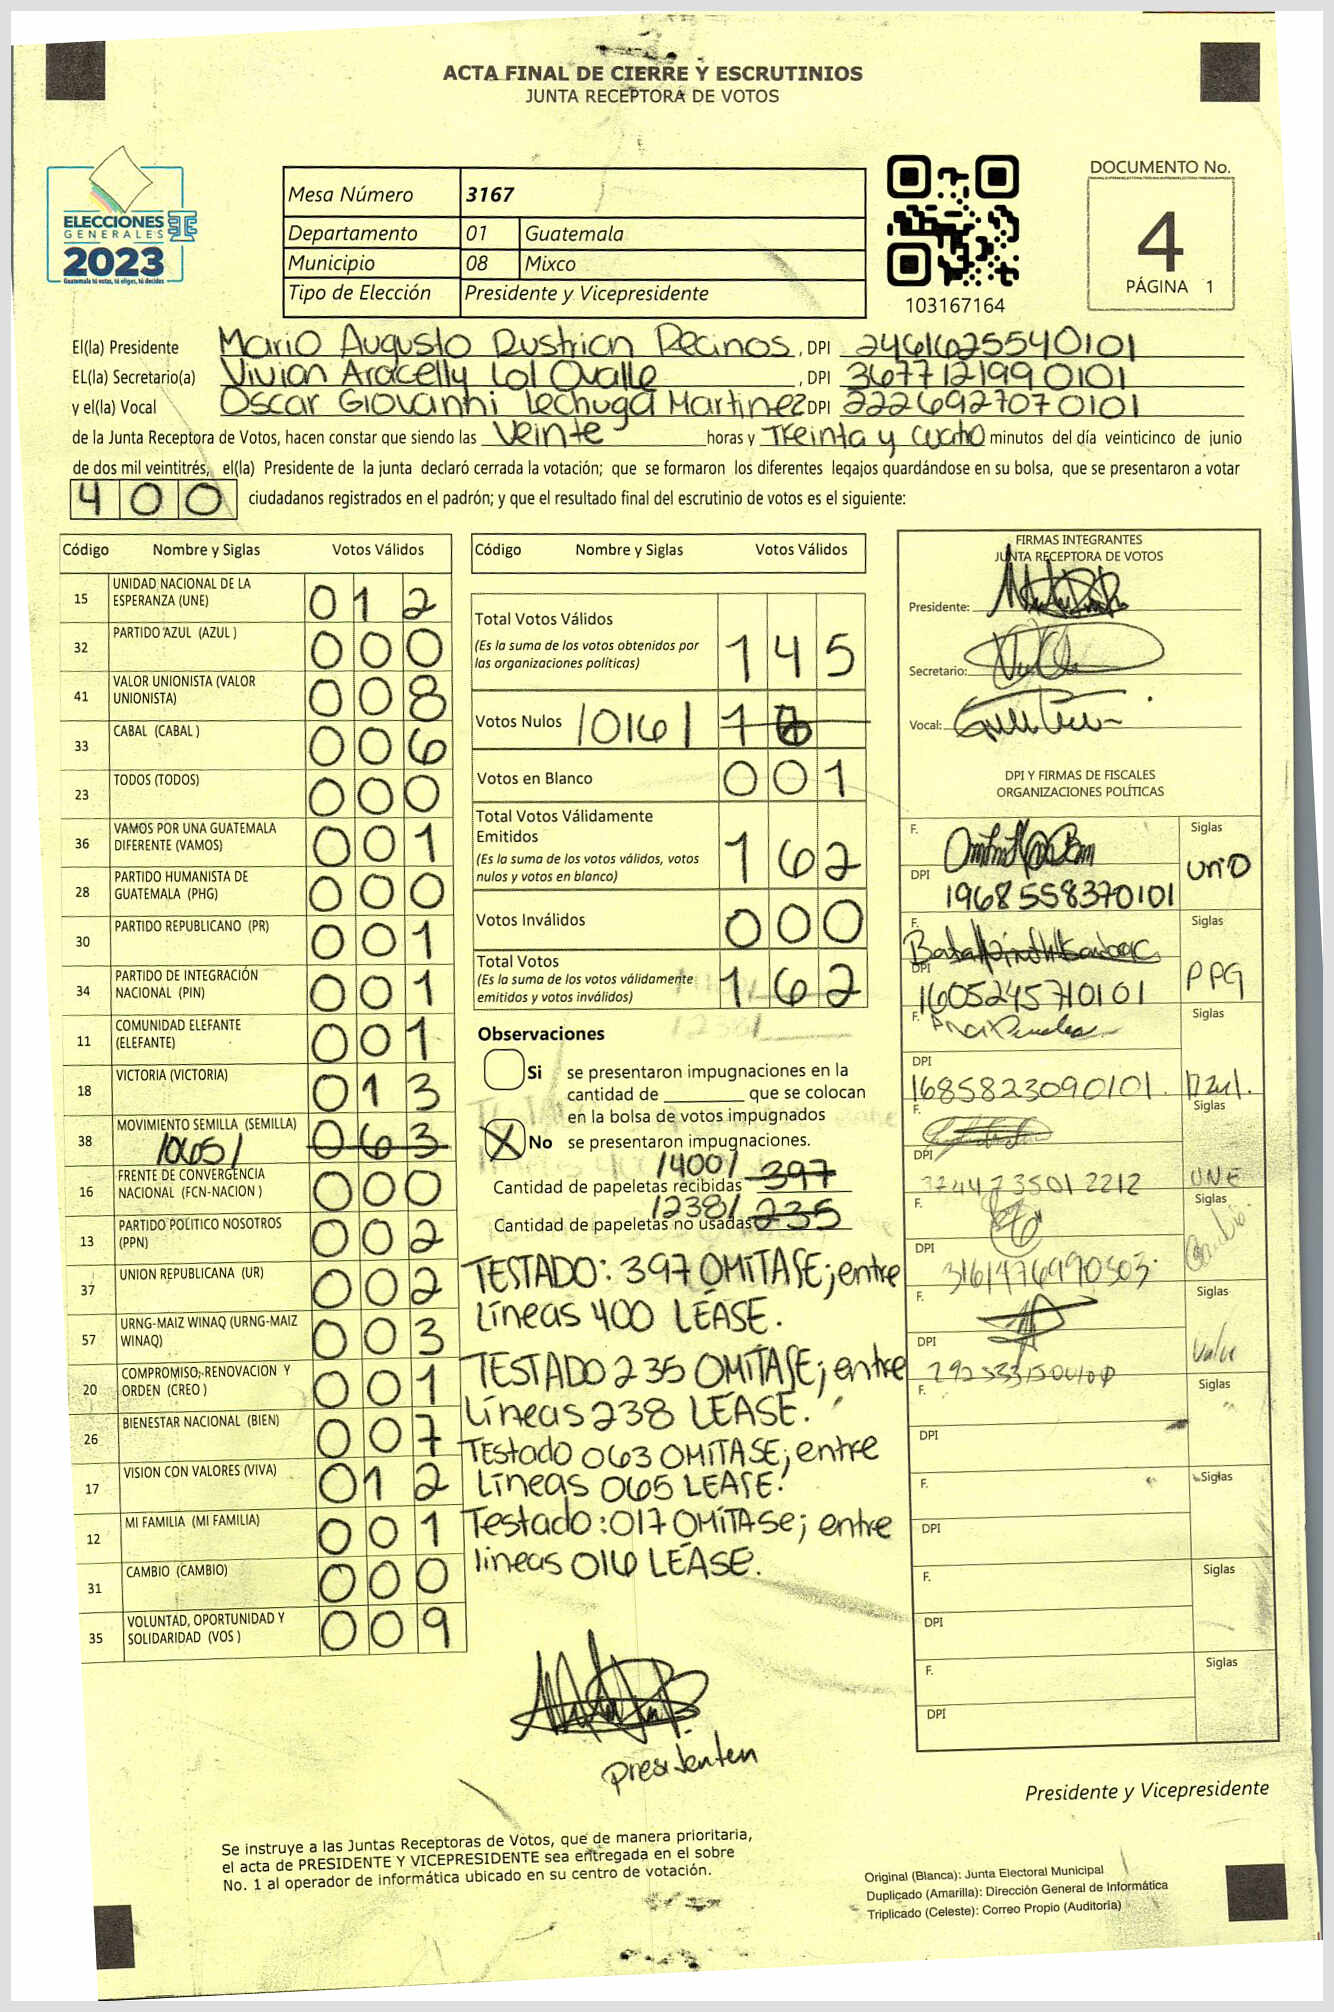 ACTA FINAL DE CIERRE Y ESCRUTINIOS
JUNTA RECEPTORA DE VOTOS
ELECCIONES
GENERALES
2023
Guatemala tú votas, tú eliges, tú decides
Mesa Número 3167
Departamento 01 Guatemala
Municipio 08 Mixco
Tipo de Elección Presidente y Vicepresidente
103167164
DOCUMENTO No.
4
PÁGINA 1
El(la) Presidente Mario Augusto Rustrian Recinos, DPI 2461625540101
EL(la) Secretario(a) Vivian Aracelly Lol Ovalle, DPI 3677121990101
y el(la) Vocal Oscar Giovanni Lechuga Martinez DPI 2226927070101
de la Junta Receptora de Votos, hacen constar que siendo las Veinte horas y Treinta y cuatro minutos del día veinticinco de junio
de dos mil veintitrés, el(la) Presidente de la junta declaró cerrada la votación; que se formaron los diferentes legajos guardándose en su bolsa, que se presentaron a votar
400 ciudadanos registrados en el padrón; y que el resultado final del escrutinio de votos es el siguiente:
Código Nombre y Siglas Votos Válidos
15 UNIDAD NACIONAL DE LA ESPERANZA (UNE) 012
32 PARTIDO AZUL (AZUL ) 000
41 VALOR UNIONISTA (VALOR UNIONISTA) 008
33 CABAL (CABAL ) 006
23 TODOS (TODOS) 000
36 VAMOS POR UNA GUATEMALA DIFERENTE (VAMOS) 001
28 PARTIDO HUMANISTA DE GUATEMALA (PHG) 000
30 PARTIDO REPUBLICANO (PR) 001
34 PARTIDO DE INTEGRACIÓN NACIONAL (PIN) 001
11 COMUNIDAD ELEFANTE (ELEFANTE) 001
18 VICTORIA (VICTORIA) 013
38 MOVIMIENTO SEMILLA (SEMILLA) /065/ 063
16 FRENTE DE CONVERGENCIA NACIONAL (FCN-NACION ) 000
13 PARTIDO POLITICO NOSOTROS (PPN) 002
37 UNION REPUBLICANA (UR) 002
57 URNG-MAIZ WINAQ (URNG-MAIZ WINAQ) 003
20 COMPROMISO, RENOVACION Y ORDEN (CREO ) 001
26 BIENESTAR NACIONAL (BIEN) 007
17 VISION CON VALORES (VIVA) 012
12 MI FAMILIA (MI FAMILIA) 001
31 CAMBIO (CAMBIO) 000
35 VOLUNTAD, OPORTUNIDAD Y SOLIDARIDAD (VOS ) 009
Código Nombre y Siglas Votos Válidos
Total Votos Válidos 145
(Es la suma de los votos obtenidos por
las organizaciones políticas)
Votos Nulos /016/
Votos en Blanco 001
Total Votos Válidamente
Emitidos 162
(Es la suma de los votos válidos, votos
nulos y votos en blanco)
Votos Inválidos 000
Total Votos 162
(Es la suma de los votos válidamente
emitidos y votos inválidos)
Observaciones
Si se presentaron impugnaciones en la
cantidad de ________ que se colocan
en la bolsa de votos impugnados
X No se presentaron impugnaciones.
Cantidad de papeletas recibidas /400/ 397
Cantidad de papeletas no usadas /238/ 235
TESTADO: 397 OMíTASE; entre
líneas 400 LÉASE.
TESTADO 235 OMíTASE; entre
Líneas 238 LÉASE.
Testado 063 OMíTASE; entre
Líneas 065 LÉASE.
Testado: 017 OMíTASE; entre
líneas 016 LÉASE.
FIRMAS INTEGRANTES
JUNTA RECEPTORA DE VOTOS
Presidente:
Secretario:
Vocal:
DPI Y FIRMAS DE FISCALES
ORGANIZACIONES POLÍTICAS
F. Siglas
DPI 1968558370101
F. Siglas PPG
DPI 1605245710101
F. Siglas
DPI 1685823090101 Azul.
F. Siglas
DPI UNE
F. Siglas
DPI
F. Siglas
DPI Valor
F. Siglas
DPI
F. Siglas
DPI
F. Siglas
DPI
F. Siglas
DPI
Presidente y Vicepresidente
Se instruye a las Juntas Receptoras de Votos, que de manera prioritaria,
el acta de PRESIDENTE Y VICEPRESIDENTE sea entregada en el sobre
No. 1 al operador de informática ubicado en su centro de votación.
Original (Blanca): Junta Electoral Municipal
Duplicado (Amarilla): Dirección General de Informática
Triplicado (Celeste): Correo Propio (Auditoría)